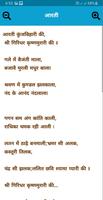 आरती
आरती कुंजबिहारी की,
श्री गिरिधर कृष्णमुरारी की ॥
गले में बैजंती माला,
बजावै मुरली मधुर बाला
श्रवण में कुण्डल झलकाला,
नंद के आनंद नंदलाला
गगन सम अंग कांति काली,
राधिका चमक रही आली ।
लतन में ठाढ़े बनमाली;भ्रमर सी अलक,
कस्तूरी तिलक,
चंद्र सी झलक;ललित छवि श्यामा प्यारी की ॥
श्री गिरिधर कृष्णमुरारी की...